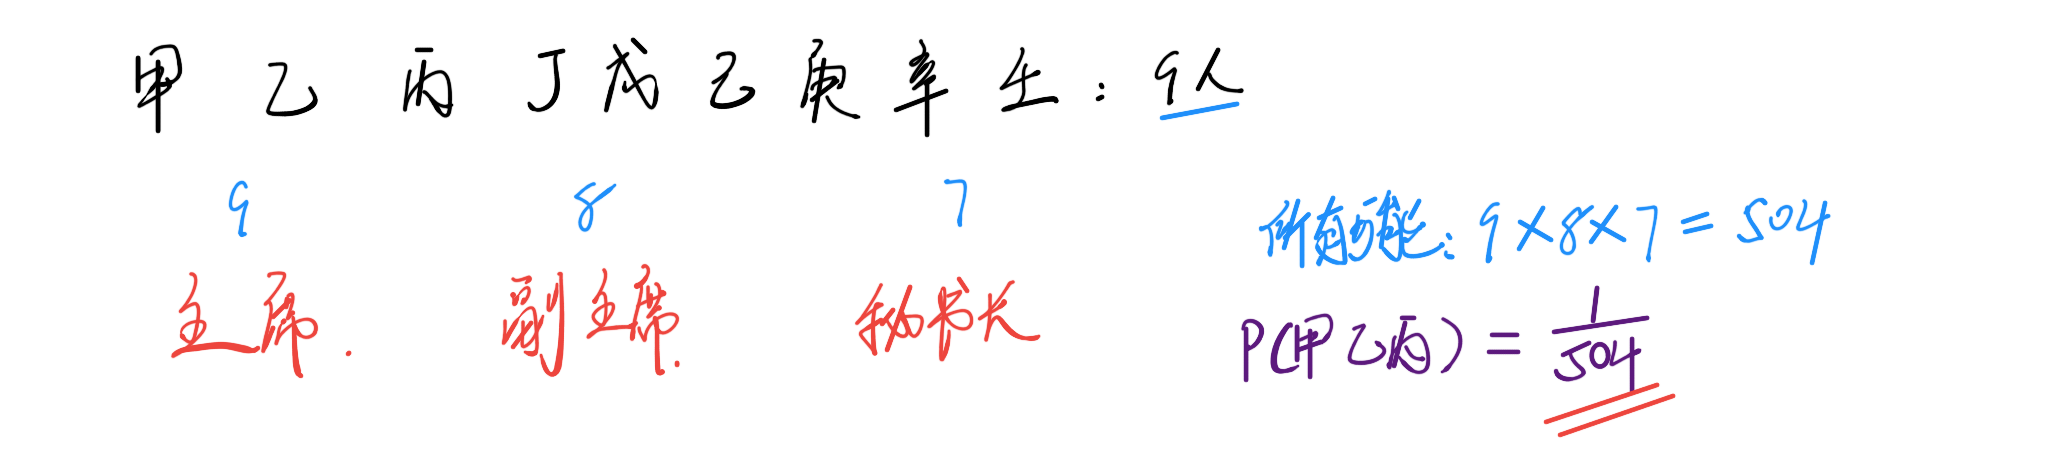 甲 乙 丙 丁 戊 己 庚 辛 壬：9人
9 8 7
主席. 副主席. 秘书长
所有可能：9×8×7=504
P(甲乙丙)=1/504